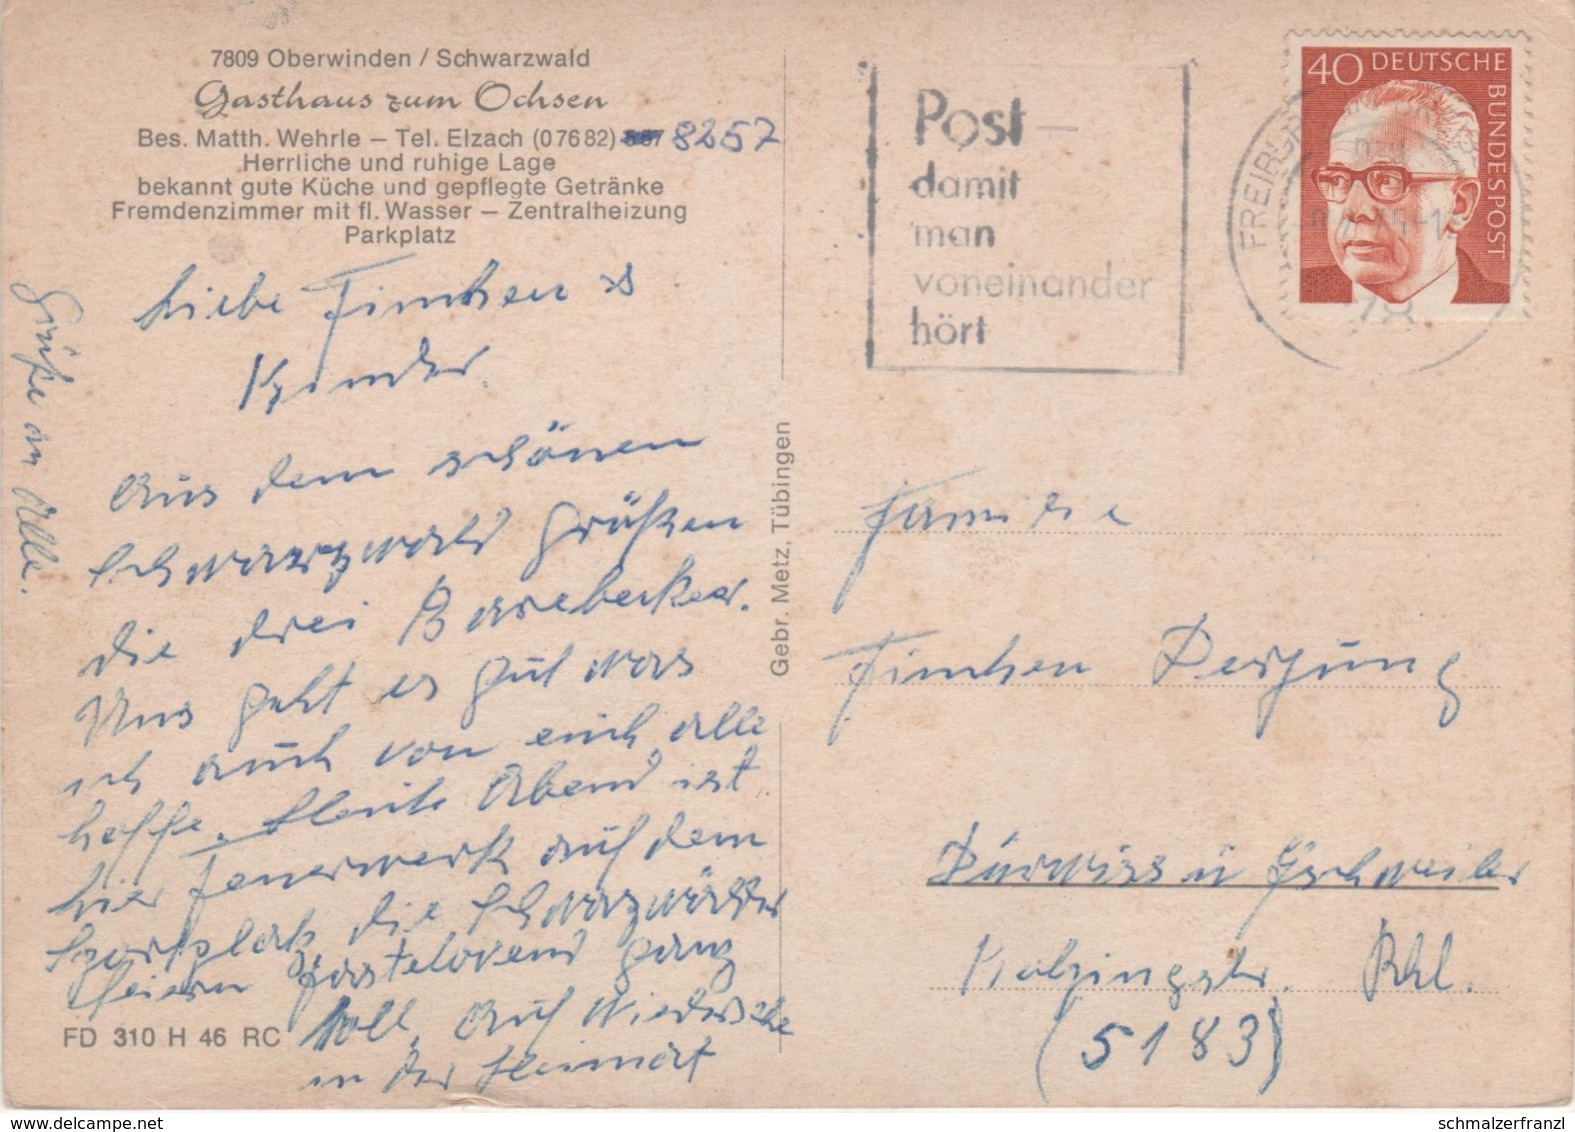 7809 Oberwinden / Schwarzwald
Gasthaus zum Ochsen
Bes. Matth. Wehrle – Tel. Elzach (07682) 8257
Herrliche und ruhige Lage
bekannt gute Küche und gepflegte Getränke
Fremdenzimmer mit fl. Wasser – Zentralheizung
Parkplatz
Liebe Finchen &
Kinder.
Aus dem schönen
Schwarzwald grüßen
die drei
Uns geht es gut was
ich auch von euch alle
hoffe. Heute Abend ist
hier Feuerwerk auf dem
Sportplatz, die Schwarzwälder
feiern ganz
toll. Auf Wiedersehe
in der Heimat
Grüße an Alle.
FD 310 H 46 RC
Gebr. Metz, Tübingen
Post –
damit
man
voneinander
hört
FREIBURG
78
40 DEUTSCHE
BUNDESPOST
Familie
Finchen
Dürwiss ü Eschweiler
Rhl.
(5183)
schmalzerfranzl
www.delcampe.net